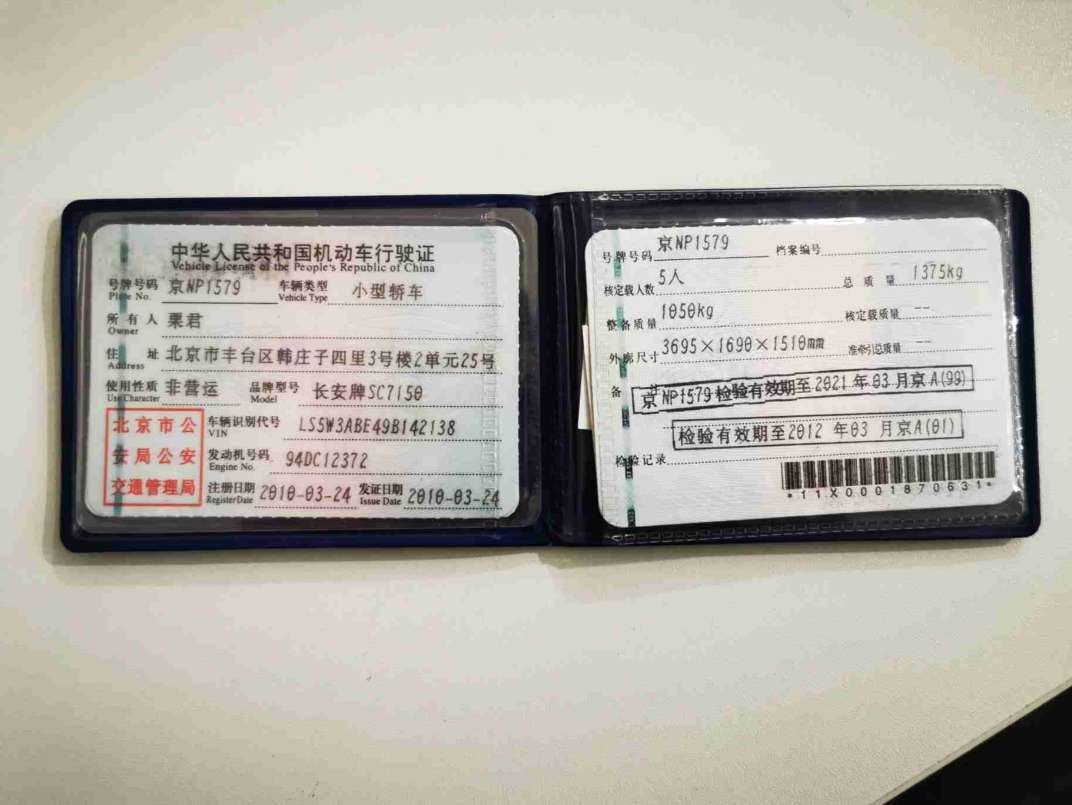 中华人民共和国机动车行驶证
Vehicle License of the People's Republic of China
号牌号码 京NP1579 车辆类型 小型轿车
Plate No. Vehicle Type
所有人 栗君
Owner
住址 北京市丰台区韩庄子四里3号楼2单元25号
Address
使用性质 非营运 品牌型号 长安牌SC7150
Use Character Model
北京市公
安局公安
交通管理局
车辆识别代号 LS5W3ABE49B142138
VIN
发动机号码 94DC12372
Engine No.
注册日期 2010-03-24 发证日期 2010-03-24
Register Date Issue Date
号牌号码 京NP1579 档案编号
核定载人数 5人 总质量 1375kg
整备质量 1050kg 核定载质量 --
外廓尺寸 3695×1690×1510mm 准牵引总质量 --
备
京NP1579检验有效期至2021年03月京A(99)
检验有效期至2012年03月京A(01)
检验记录
*11X0001870631*